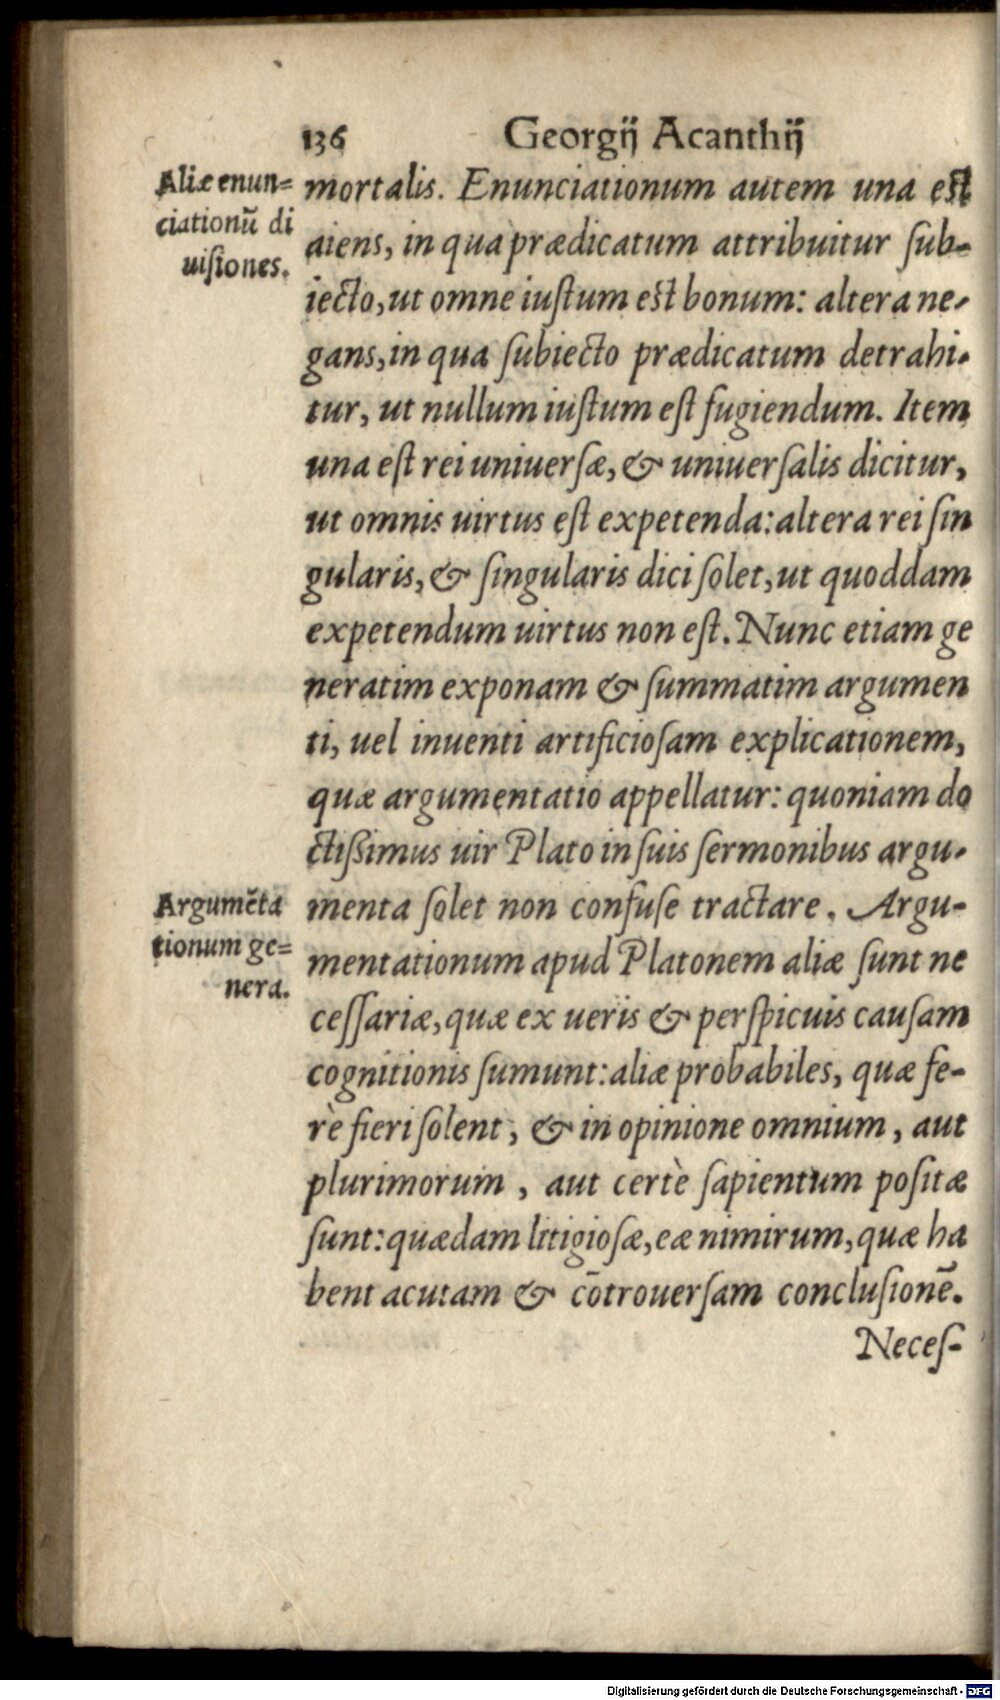 136 Georgij Acanthij
Aliæ enun=
ciationū di
uisiones.
mortalis. Enunciationum autem una est
aiens, in qua prædicatum attribuitur sub-
iecto, ut omne iustum est bonum: altera ne-
gans, in qua subiecto prædicatum detrahi-
tur, ut nullum iustum est fugiendum. Item
una est rei uniuersæ, & uniuersalis dicitur,
ut omnis uirtus est expetenda: altera rei sin
gularis, & singularis dici solet, ut quoddam
expetendum uirtus non est. Nunc etiam ge
neratim exponam & summatim argumen
ti, uel inuenti artificiosam explicationem,
quæ argumentatio appellatur: quoniam do
ctissimus uir Plato in suis sermonibus argu-
Argumēta
tionum ge=
nera.
menta solet non confuse tractare. Argu-
mentationum apud Platonem aliæ sunt ne
cessariæ, quæ ex ueris & perspicuis causam
cognitionis sumunt: aliæ probabiles, quæ fe-
rè fieri solent, & in opinione omnium, aut
plurimorum, aut certè sapientum positæ
sunt: quædam litigiosæ, eæ nimirum, quæ ha
bent acutam & cōtrouersam conclusionē.
Neces-
Digitalisierung gefördert durch die Deutsche Forschungsgemeinschaft - DFG